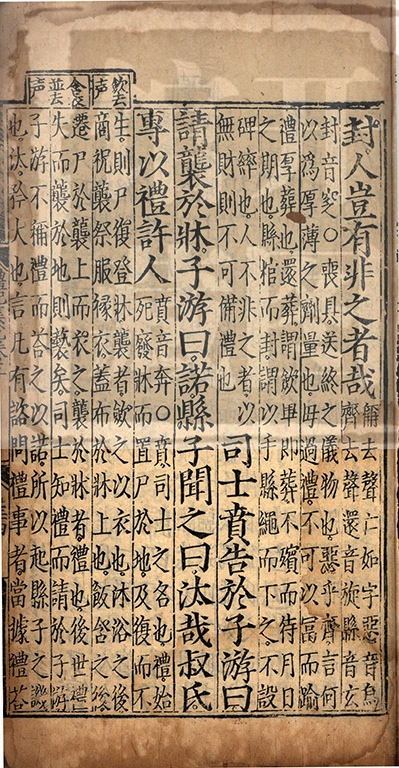 封人豈有非之者哉
稱去聲亡如字惡音烏
齊去聲還音旋縣音玄
封音窆○喪具送終之儀物也惡乎齊言何
以爲厚薄之劑量也毋過禮不可以富而踰
禮厚葬也還葬謂斂畢即葬不殯而待月日
之期也縣棺而封謂以手縣繩而下之不設
碑繂也人不非之者以
無財則不可備禮也
司士賁告於子游曰
請襲於牀子游曰諾縣子聞之曰汰哉叔氏
專以禮許人
賁音奔○賁司士之名也禮始
死廢牀而置尸於地及復而不
生則尸復登牀襲者斂之以衣也沐浴之後
商祝襲祭服褖衣蓋布於牀上也飯含之後
遷尸於襲上而衣之襲於牀者禮也後世禮
失而襲於地則褻矣司士知禮而請於子游
子游不稱禮而荅之以諾所以起縣子之譏
也汰矜大也言凡有諮問禮事者當據禮荅
斂去
声
含
並去
声